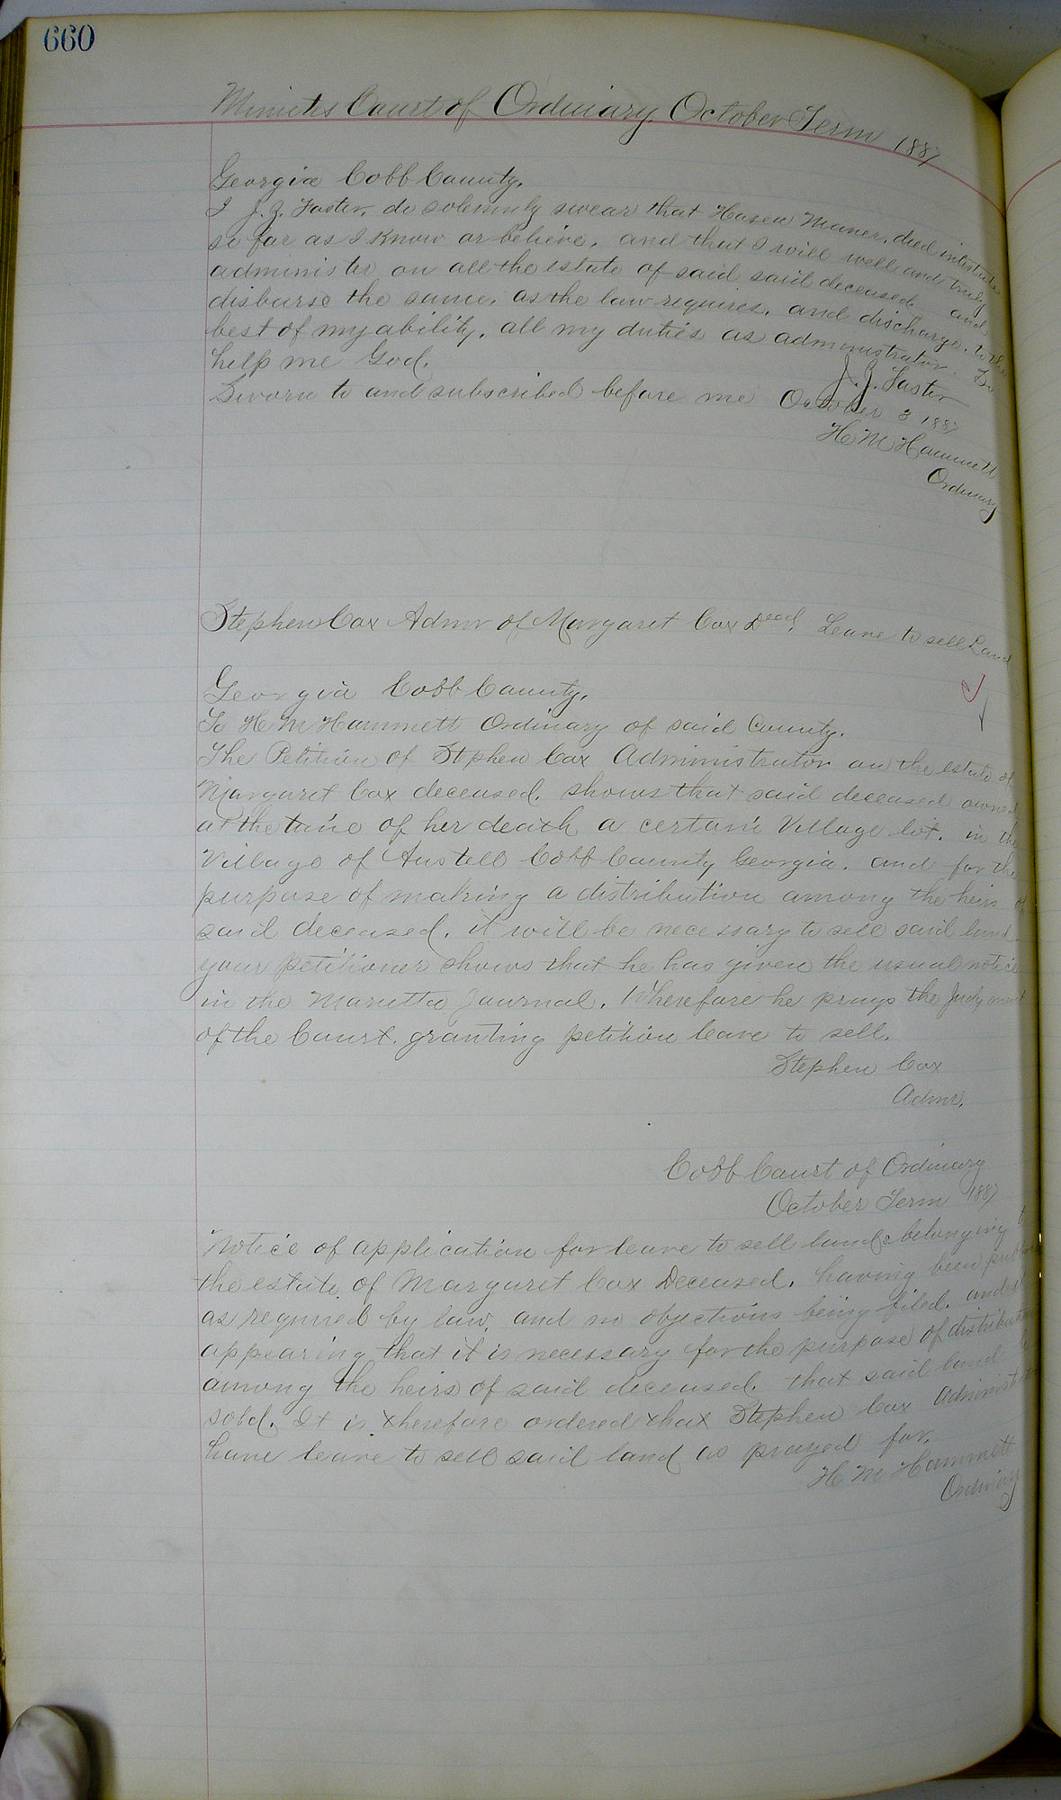 660
Minutes Court of Ordinary October Term 1887
Georgia Cobb County.
I J. Z. Foster, do solemnly swear that Hasen Maner, died intestate
so far as I know or believe, and that I will well and truly
administer on all the estate of said said deceased, and
disburse the same, as the law requires, and discharge, to the
best of my ability, all my duties as administrator. So
help me God.
J. Z. Foster
Sworn to and subscribed before me October 3 1887
H M Hammett
Ordinary
Stephen Cox Admr of Margaret Cox Decd, Leave to sell Land
Georgia Cobb County,
To H M Hammett Ordinary of said County.
The Petition of Stephen Cox Administrator on the estate of
Margaret Cox deceased, shows that said deceased owned
at the time of her death a certain Village lot, in the
Village of Austell Cobb County Georgia, and for the
purpose of making a distribution among the heirs of
said deceased, it will be necessary to sell said land
your petitioner shows that he has given the usual notice
in the Marietta Journal. Wherefore he prays the Judgment
of the Court, granting petition leave to sell.
Stephen Cox
Admr.
Cobb Court of Ordinary
October Term 1887
Notice of application for leave to sell lands belonging
the estate of Margaret Cox Deceased, having been
as required by law, and no objections being filed, and
appearing that it is necessary for the purpose of distribution
among the heirs of said deceased, that said land
sold. It is therefore ordered that Stephen Cox
have leave to sell said land as prayed for,
H M Hammett
Ordinary